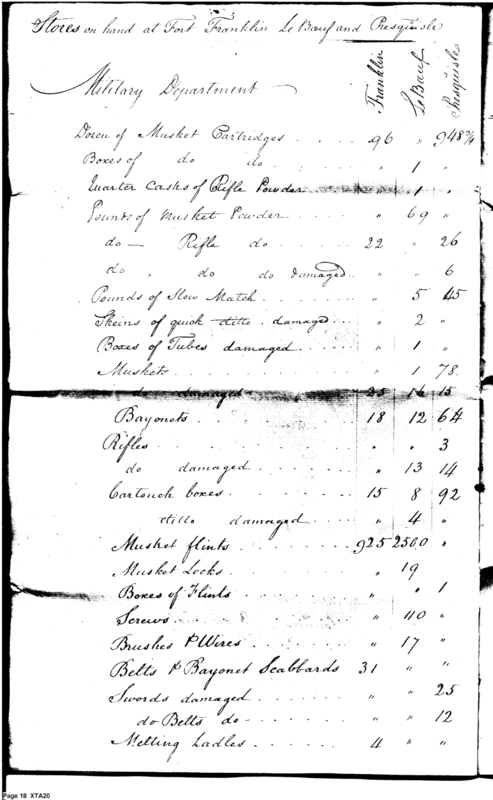 Stores on hand at Fort Franklin Le Bœuf and Presquisle
Military Department Franklin Le Bœuf Presquisle
Dozen of Musket Cartridges . . . . 96 " 948 3/4
Boxes of do do . . . . " 1 "
Quarter Casks of Rifle Powder " 1 "
Pounds of Musket Powder . . . . " 69 "
do — Rifle do . . . . 22 " 26
do " do do damaged . . " " 6
Pounds of Slow Match . . . . " 5 45
Skeins of quick ditto . damaged . . . " 2 "
Boxes of Tubes damaged . . . . " 1 "
Muskets . . . . " 1 78
do damaged . . . . 25 16 15
Bayonets . . . . 18 12 64
Rifles . . . . " " 3
do damaged . . . . " 13 14
Cartouch boxes . . . . 15 8 92
ditto damaged . . . . " 4 "
Musket flints . . . . 925 2500 "
Musket Locks . . . . " 19
Boxes of Flints . . . . " " 1
Screws . . . . " 110 "
Brushes & Wires . . . . " 17 "
Belts & Bayonet Scabbards 31 " "
Swords damaged . . . . " " 25
do Belts do - . . . . " " 12
Melting Ladles . . . . 4 " "
Page 18 XTA20